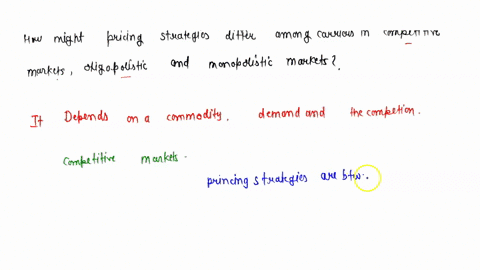 How might pricing strategies differ among carriers in competitive
markets, oligopolistic and monopolistic markets?.
It Depends on a commodity. demand and the competion.
Competitive markets.
princing strategies are btw.